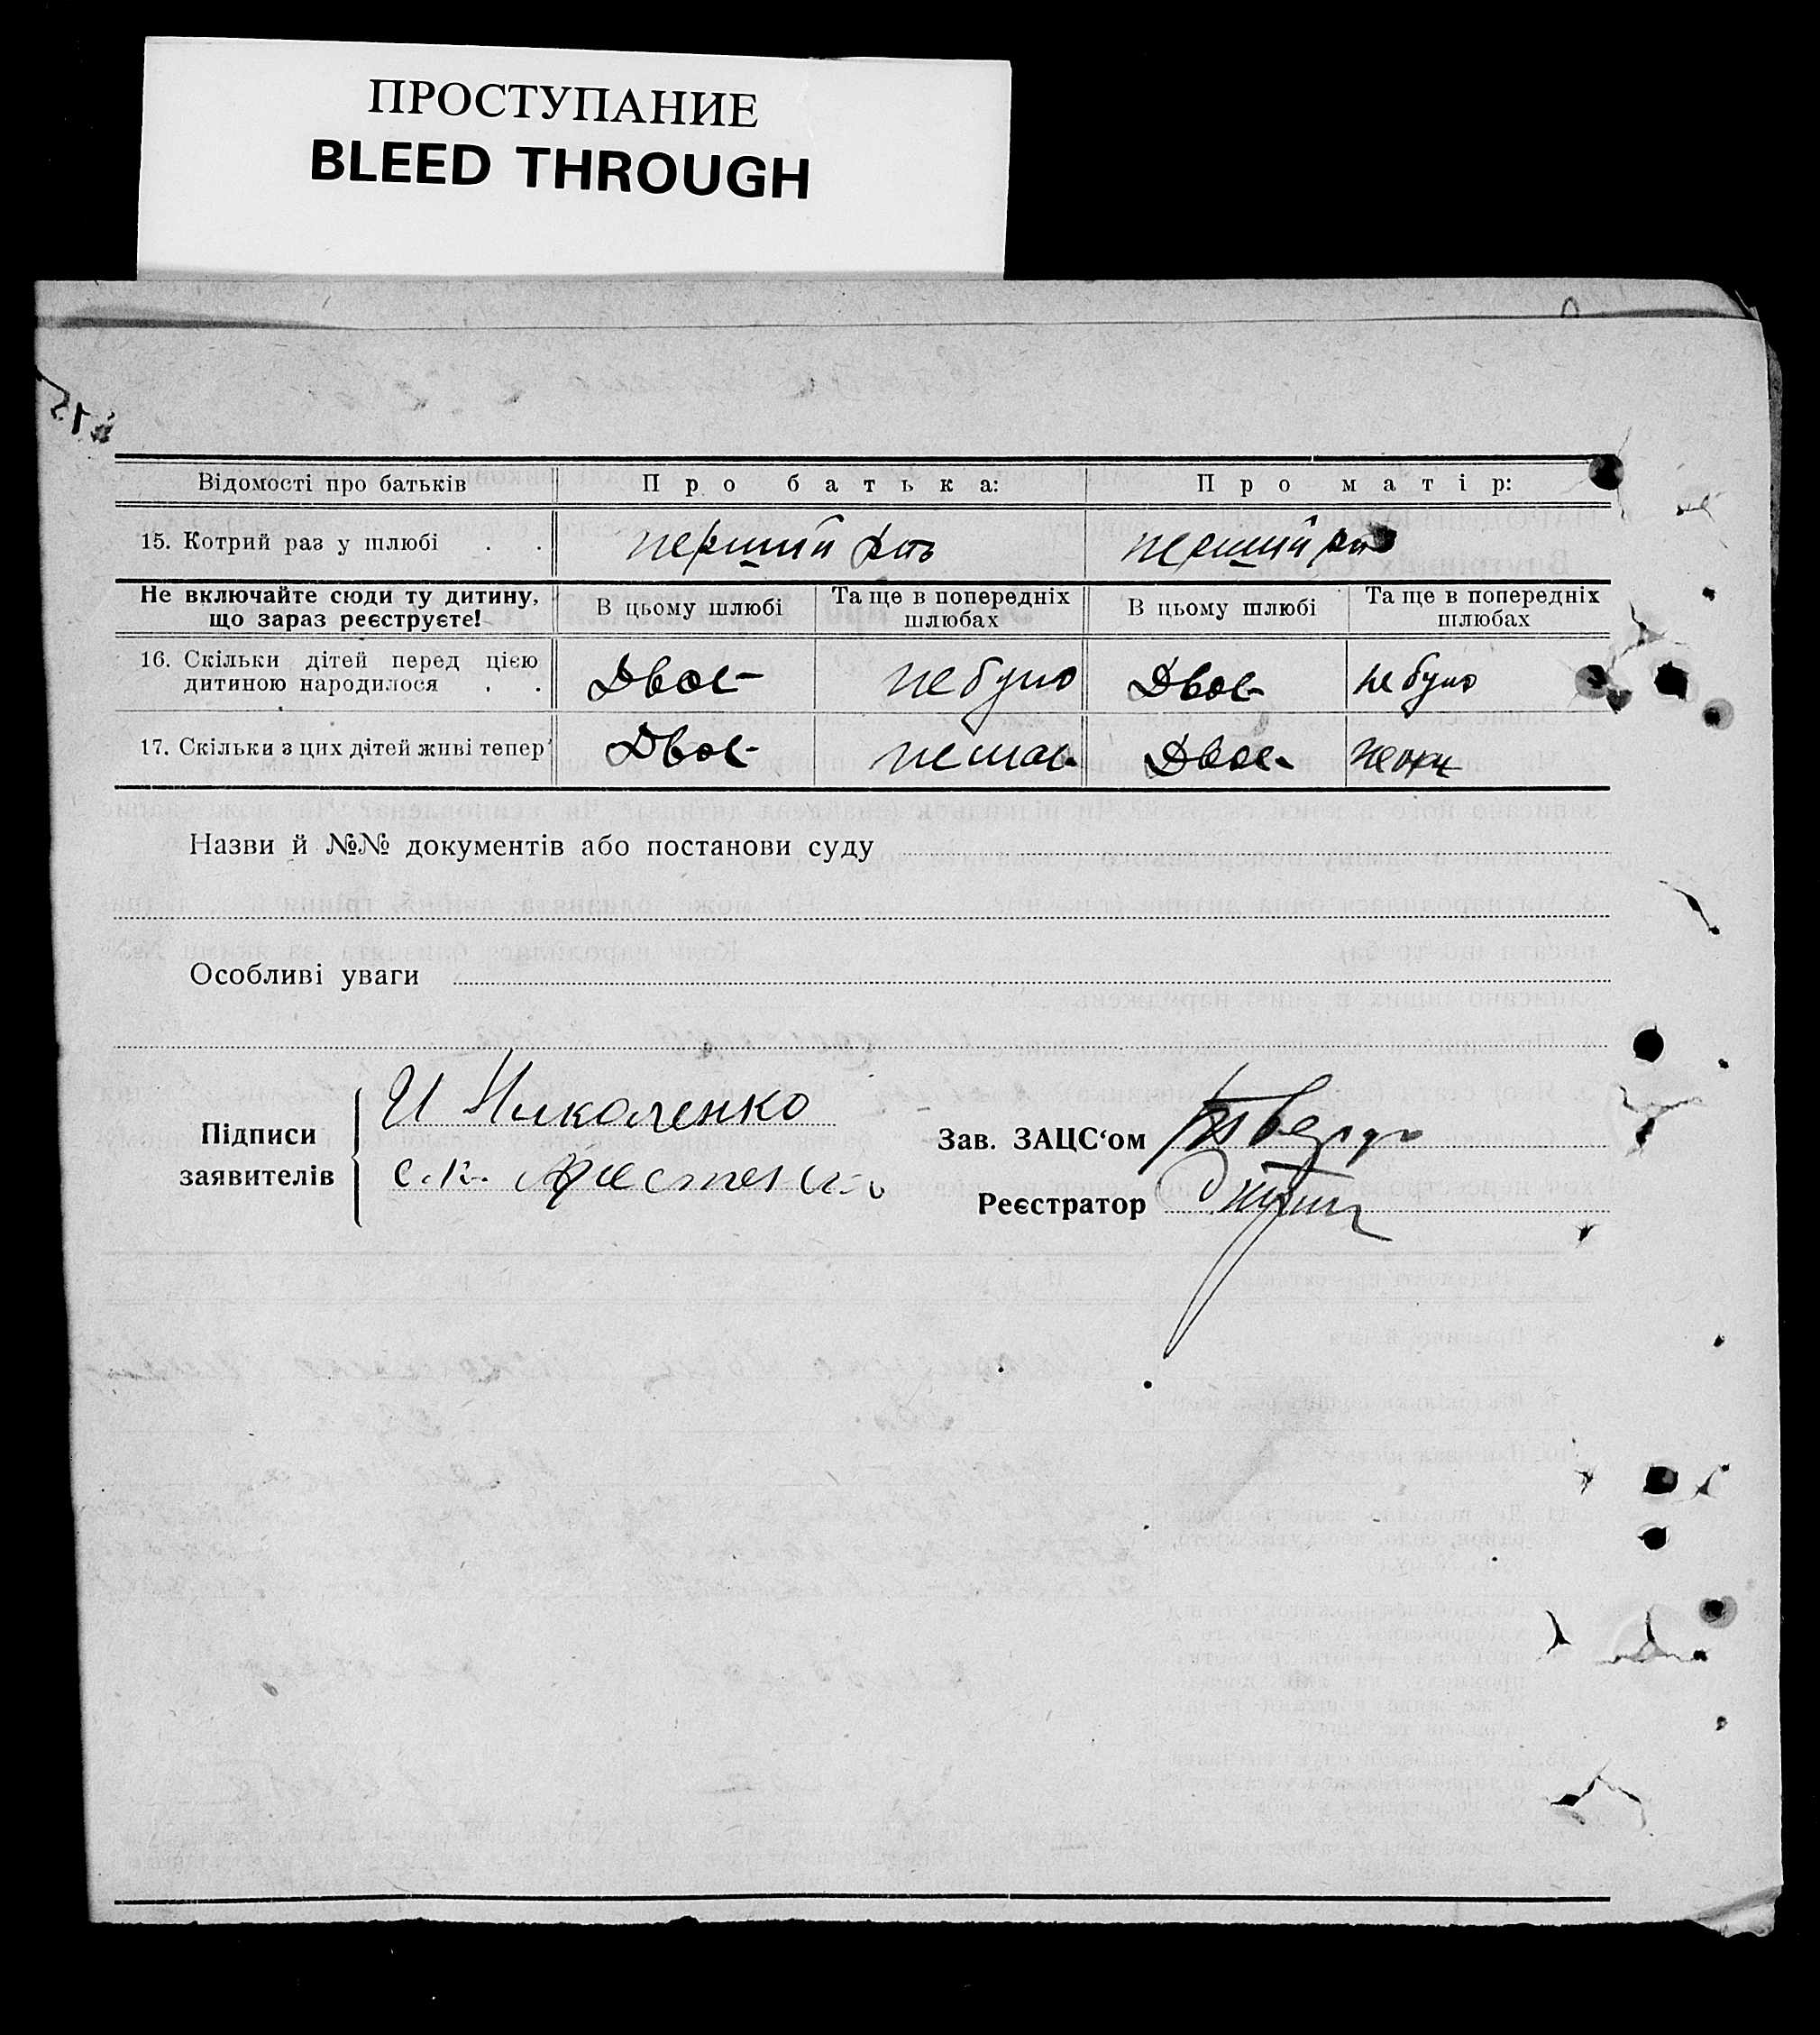 ПРОСТУПАНИЕ
BLEED THROUGH
Відомості про батьків Про батька: Про матір:
15. Котрий раз у шлюбі . . перший раз перший раз
Не включайте сюди ту дитину, що зараз реєструєте! В цьому шлюбі Та ще в попередніх шлюбах В цьому шлюбі Та ще в попередніх шлюбах
16. Скільки дітей перед цією дитиною народилося . . Двоє не було Двоє не було
17. Скільки з цих дітей живі тепер Двоє немає Двоє
Назви й №№ документів або постанови суду
Особливі уваги
Підписи заявителів
И Николенко
С.К.
Зав. ЗАЦС‘ом
Реєстратор